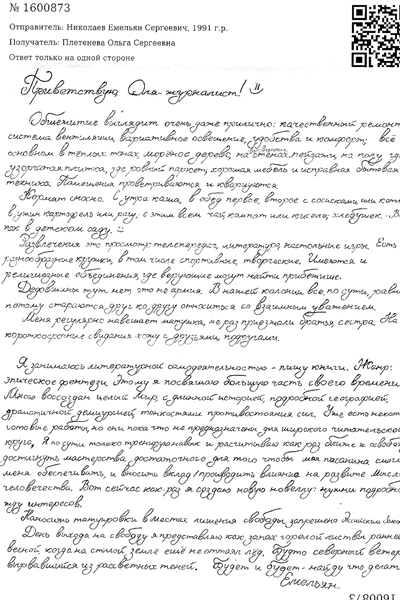 № 1600873
Отправитель: Николаев Емельян Сергеевич, 1991 г.р.
Получатель: Плетенева Ольга Сергеевна
Ответ только на одной стороне
Приветствую, Оля-журналист!
Общежитие выглядит очень даже прилично: качественный ремонт
система вентиляции, вариативное освещение, удобства и комфорт; всё
основном в тёплых тонах морёное дерево, на стенах пейзажи, на полу где
узорчатая плитка, где ровный паркет; хорошая мебель и исправная бытовая
техника. Помещения проветриваются и кварцуются.
Кормят сносно. С утра каша, в обед первое, второе с сосисками или
в ужин картофель или рагу, с этим всем чай, компот или кисель; хлебушек.
как в детском саду.
Развлечения это просмотр телепередач, литература, настольные игры. Есть
разнообразные кружки, в том числе спортивные, творческие. Имеются и
религиозные объединения, где верующие могут найти прибежище.
Дедовщины тут нет это не армия. В нашей колонии все, по сути, равны
потому стараются друг ко другу относиться со взаимным уважением.
Меня регулярно навещает матушка, не раз приезжали братья, сестра. На
короткосрочные свидания хожу с друзьями, подругами.
Я занимаюсь литературной самодеятельностью - пишу книги. Жанр:
эпическое фентези. Этому я посвящаю большую часть своего времени
Мною воссоздан целый мир с длинной историей, подробной географией,
драматичной демиургией, тонкостями противостояния сил. Уже есть некот
готовые работы, но они пока что не предназначены для широкого читательског
круга, Я по сути только тренировался и рассчитываю как раз ближе к освобо
достигнуть мастерства, достаточного для того чтобы моя писанина смогла
меня обеспечивать, и вносить вклад/производить влияние на развитие
человечества. Вот сейчас как раз я создаю новую новеллу: нужны подробно
интересов.
Наносить татуировки в местах лишения свободы запрещено
День выхода на свободу я представляю как запах горелой листвы ранней
весной, когда на стылой земле ещё не оттаял лёд. Будто северный ветер
вырвавшийся из расветных теней. Будет и будет - найду что делать
Емельян.
1600873